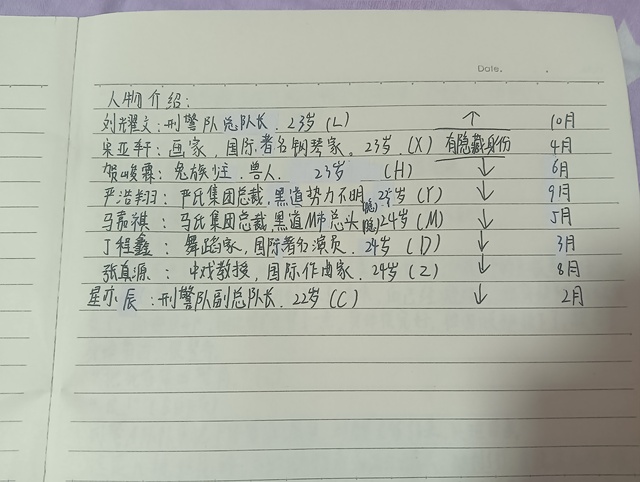 Date.
人物介绍:
刘耀文:刑警队总队长.23岁(L) ↑ 10月
宋亚轩:画家,国际著名钢琴家。23岁.(X) 有隐藏身份 4月
贺峻霖:兔族少主.兽人. 23岁 (H) ↓ 6月
严浩翔:严氏集团总裁,黑道势力不明(隐)24岁(Y) ↓ 9月
马嘉祺:马氏集团总裁,黑道M市总头(隐)24岁(M) ↓ 5月
丁程鑫:舞蹈家,国际著名演员.24岁(D) ↓ 3月
张真源:中戏教授,国际作曲家.24岁(Z) ↓ 8月
星亦辰:刑警队副总队长.22岁(C) ↓ 2月